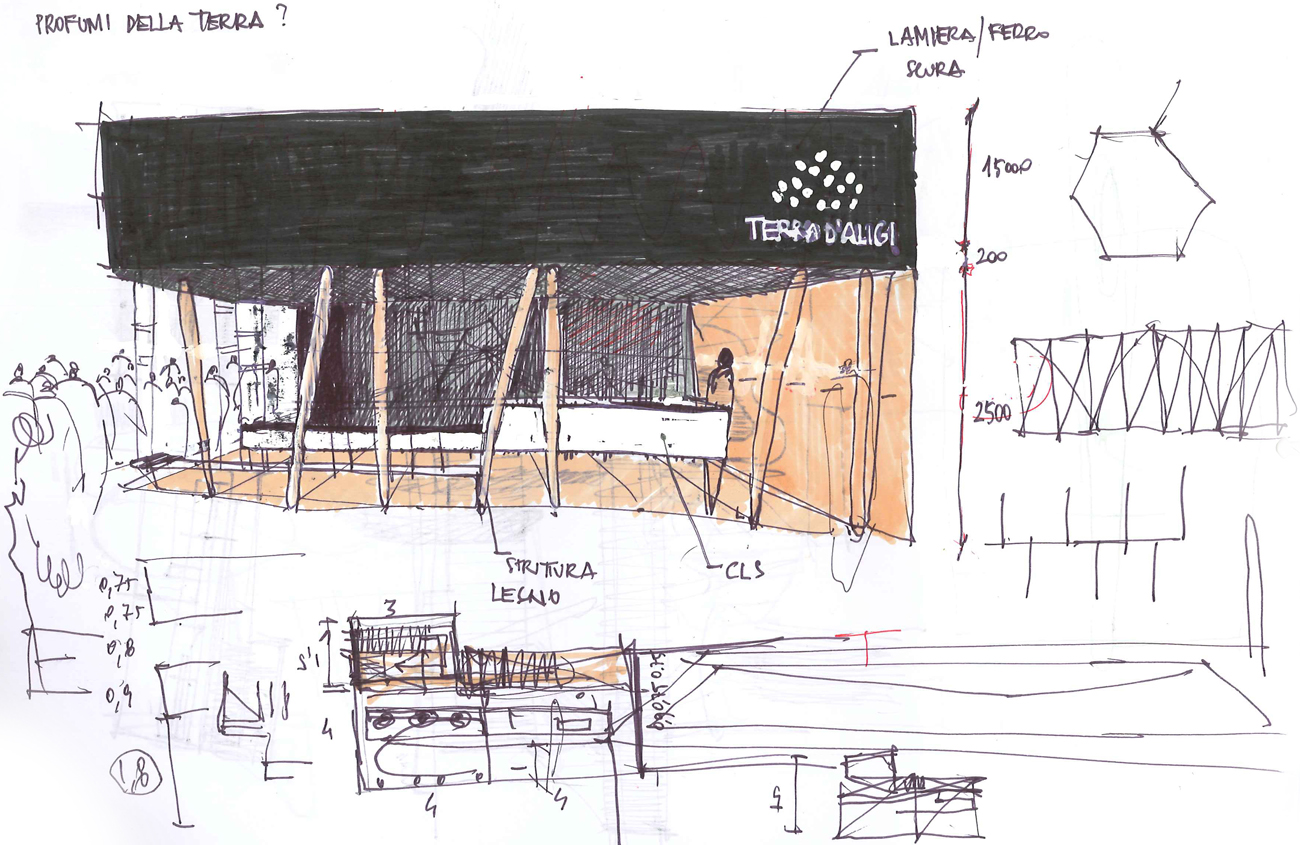 PROFUMI DELLA TERRA ?
LAMIERA/FERRO
SCURA
TERRA D'ALIGI
15000
200
2500
STRUTTURA
LEGNO
CLS
0,75
0,75
0,8
0,9
1,8
3
4
4
4